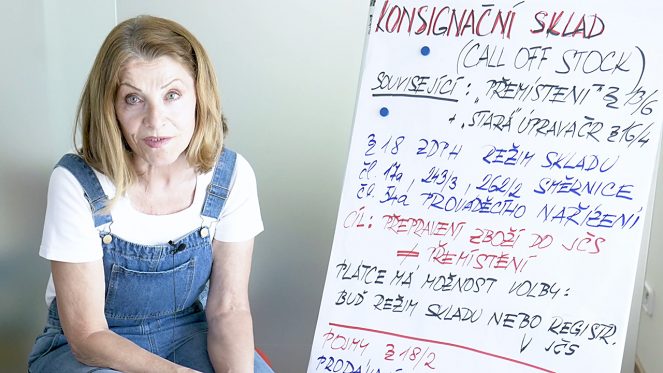 KONSIGNAČNÍ SKLAD
(CALL OFF STOCK)
SOUVISEJÍCÍ: "PŘEMÍSTENÍ" § 13/6
+ "STARÁ" ÚPRAVA ČR § 16/4
§ 18 ZDPH REŽIM SKLADU
čl. 17a, 243/3, 262/2 SMĚRNICE
čl. 54a PROVÁDĚCÍHO NAŘÍZENÍ
CÍL: PŘEPRAVENÍ ZBOŽÍ DO JČS
≠ PŘEMÍSTĚNÍ
PLÁTCE MÁ MOŽNOST VOLBY:
BUĎ REŽIM SKLADU NEBO REGISTR.
V JČS
POJMY § 18/2